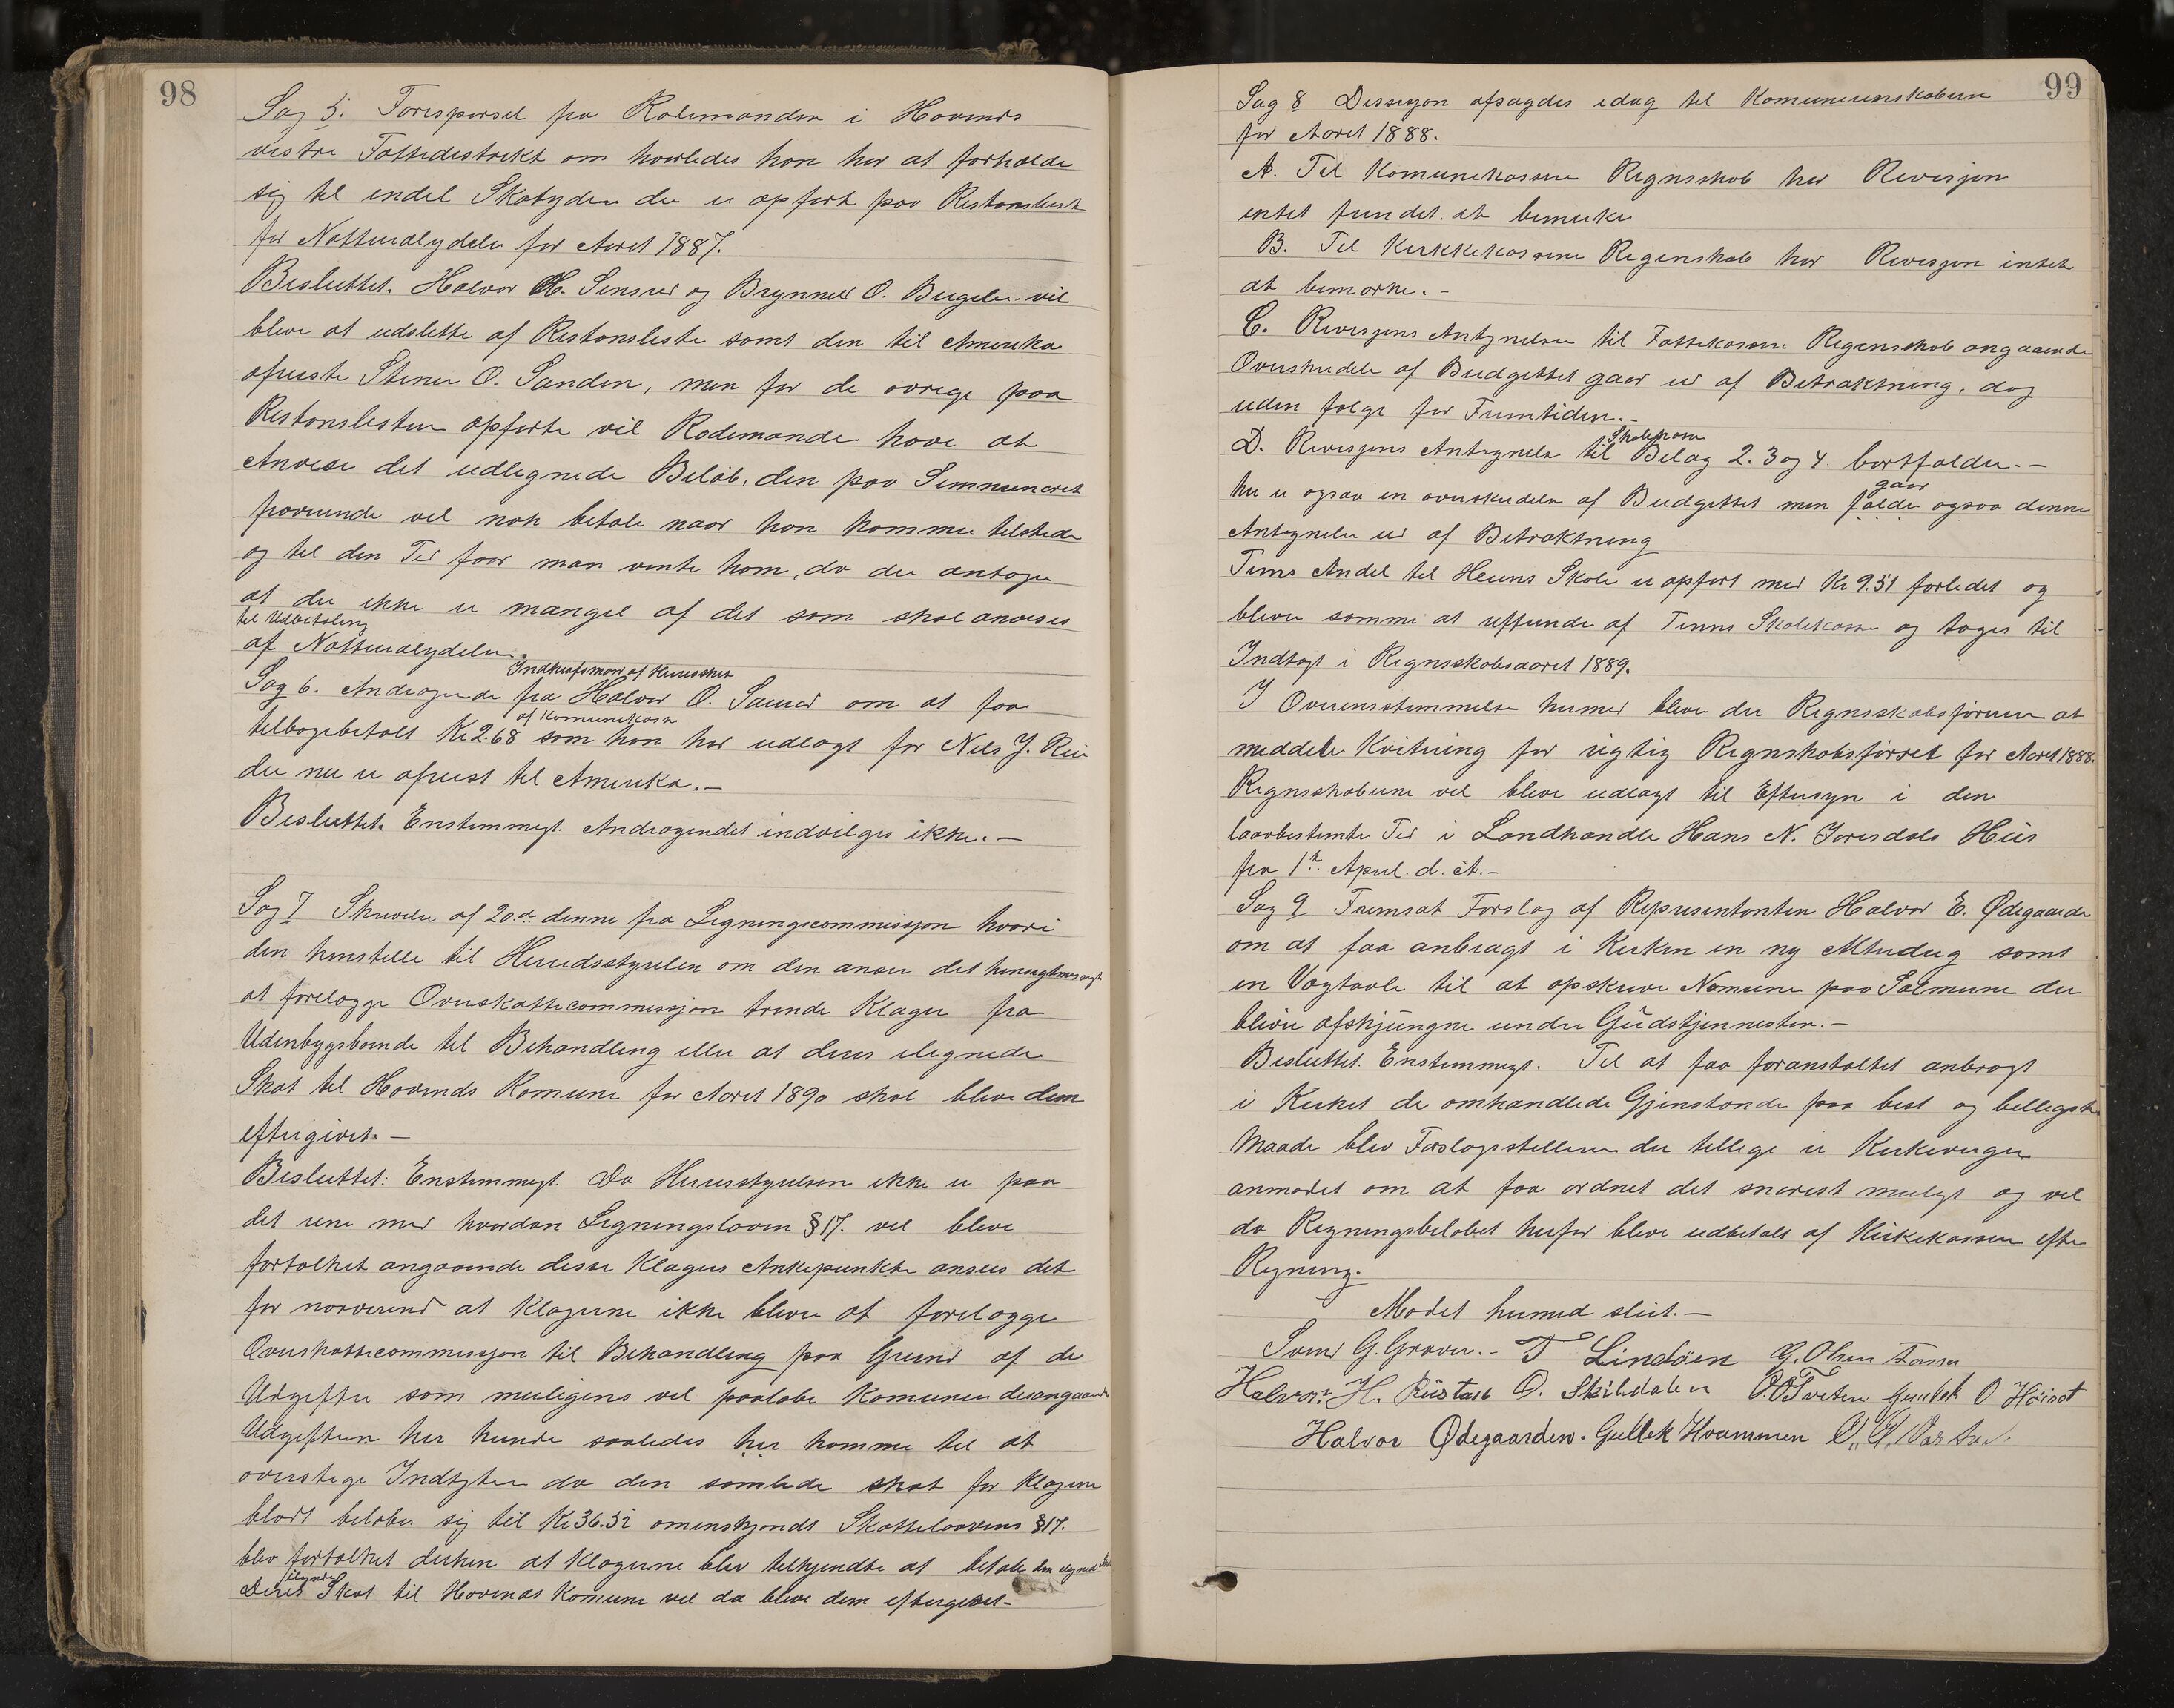 98
Sag 5. Forespørsel fra Rodemanden i Hovinds
vestre Fattedestrekt om hvorledes han har at forholde
sig til endel Skatyder der er opført paa Restanslist
for Natturalydelse for Aaret 1887.
Besluttet. Halvor H. og Brynneld O. vil
blive at udslette af Restansliste samt den til Amerika
afreiste Stener O. Sanden, men for de øvrige paa
Restanslisten opførte vil Rodemande have at
Anvise det udlegnede Beløb, den paa
vel nok betale naar han kommer tilstede
og til den Tid faar man vente ham, da der antages
at der ikke er mangel af det som skal anvises
til Udbetaling
af Natturalydelsen.
Indkrafsman af Herredsk
Sag 6. Andragende fra Halvor O. om at faa
af Komunekasse
tilbagebetalt Kr 2.68 som han har udlagt for Nels J.
der nu er afreist til Amerika.—
Besluttet. Enstemmigt. Andragendet indvilges ikke.—
Sag 7 Skrivelse af 20de dennes fra Legningscommissjon hvori
den henstelle til Herredsstyrelsen om den anser det
at forelægge Overskattecommissjon trende Klager fra
Udenbygsboende til Behandling eller at deres ilegnede
Skat til Hovinds Komune for Aaret 1890 skal blive dem
eftergivet.—
Besluttet: Enstemmigt. Da Herredsstyrelsen ikke er paa
det rene med hvordan Legningsloven §17. vil blive
fortolket angaaende disse Klagers Ankepunkte ansees det
for at Klagerne ikke bliver at forelægge
Overskattecommissjon til Behandling paa Grund af de
Udgefter som muligens vil paaløbe Komunen desangaaende
Udgeften her kunde saaledes her komme til at
overstige Indtægten da den samlede skat for Klagerne
blodt beløber sig til Kr 36.52 omenskjøndt Skatteloovens §17.
blev fortolket derhen at Klagerne blev tilkjendte at betale
ilegnede
Deres Skat til Hovinds Komune vil da blive dem eftergivet—
99
Sag 8 Dessisjon afsagdes idag til Komuneregnskaberne
for Aaret 1888.
A. Til Komunekassens Regnskab har Revisjon
entet fundet at bemerke
B. Til Kirkkekassens Regenskab har Revisjon intet
at bemærke.—
C. Revisjons Antegnelse til Fattekassens Regenskab angaaende
Overskridelse af Budgettet gaar ud af Betraktning, dog
uden følge for Fremtiden.—
Skolekasse
D. Revisjons Antegnelse til Belag 2. 3 og 4. bortfalder.—
gaar
her er ogsaa en overskridelse af Budgettet men falder ogsaa denne
Antegnelse ud af Betraktning
Tinns Andel til Skole er opført med Kr 9.51 forledet og
bliver samme at reffundere af Tinns Skolekasse og tages til
Indtægt i Regnsskabsaaret 1889.
I Overensstemmelse hermed bliver der Regnsskabsføreren at
meddele Kvitering for rigtig Regnskabsførsel for Aaret 1888.
Regnsskaberne vil blive udlagt til Eftersyn i den
laavbestemte Tid i Landhandle Hans N. Hus
fra 1ste April d. A.—
Sag 9 Fremsat Forslag af Representanten Halvor E. Ødegaarde
om at faa anbragt i Kirken en ny Alterdug samt
en Vægtavle til at opskrive Nomrene paa Salmerne der
bliver afskjungne under Gudstjennesten.—
Besluttet. Enstemmigt. Til at faa foranstaltet anbragt
i Kirken de omhandlede Gjenstande paa best og billigste
Maade blev Forslagsstilleren der tellige er Kirkeverger
anmodet om at faa ordnet det snarest muligt og vil
da Regningsbeløbet herfor blive udbetalt af Kirkekassen efter
Regning.
Mødet hermed slut.—
G. Graver.— T Lindöen G. Olsen
Halvor H. Rustad O. Skibdalen O. O. Tveten Gunlek O
Halvor Ødegaarden. Gullek Hvammen